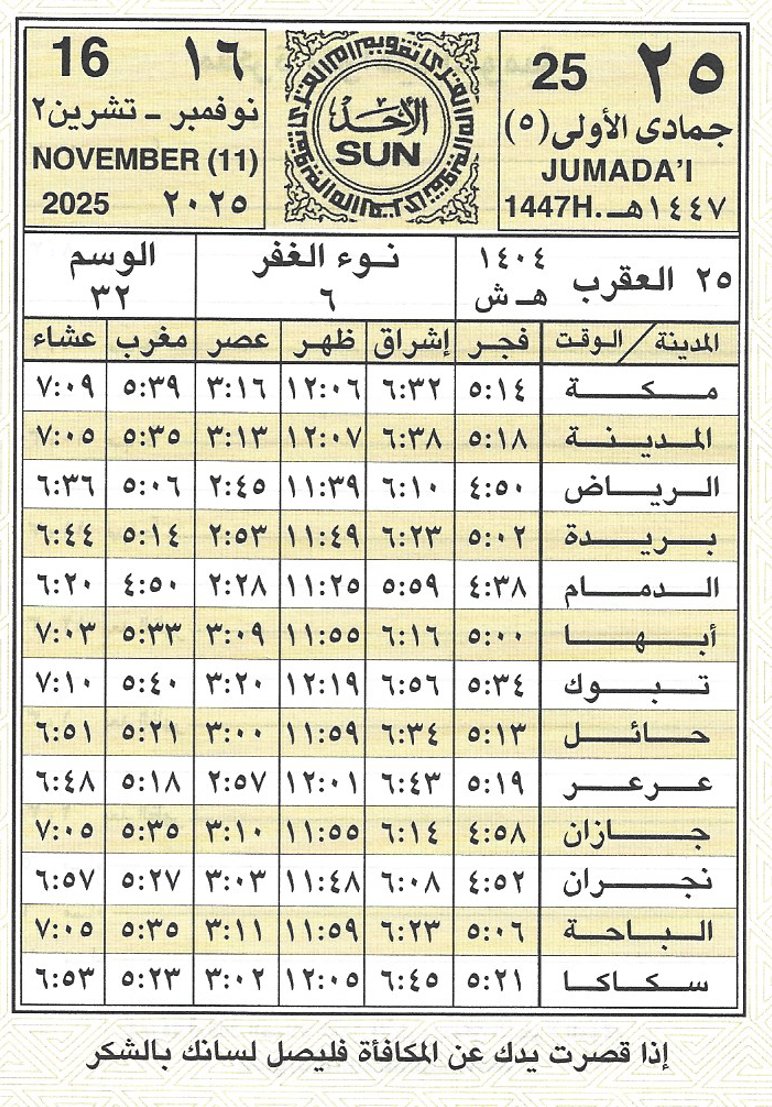 ٢٥ 25
جمادى الأولى (٥)
JUMADA'I
1447H. ١٤٤٧هـ
الأحد
SUN
16 ١٦
نوفمبر – تشرين٢
NOVEMBER (11)
2025 ٢٠٢٥
٢٥ العقرب ١٤٠٤ هـ ش
نوء الغفر ٦
الوسم ٣٢
المدينة / الوقت فجر إشراق ظهر عصر مغرب عشاء
مكة ٥:١٤ ٦:٣٢ ١٢:٠٦ ٣:١٦ ٥:٣٩ ٧:٠٩
المدينة ٥:١٨ ٦:٣٨ ١٢:٠٧ ٣:١٣ ٥:٣٥ ٧:٠٥
الرياض ٤:٥٠ ٦:١٠ ١١:٣٩ ٢:٤٥ ٥:٠٦ ٦:٣٦
بريدة ٥:٠٢ ٦:٢٣ ١١:٤٩ ٢:٥٣ ٥:١٤ ٦:٤٤
الدمام ٤:٣٨ ٥:٥٩ ١١:٢٥ ٢:٢٨ ٤:٥٠ ٦:٢٠
أبها ٥:٠٠ ٦:١٦ ١١:٥٥ ٣:٠٩ ٥:٣٣ ٧:٠٣
تبوك ٥:٣٤ ٦:٥٦ ١٢:١٩ ٣:٢٠ ٥:٤٠ ٧:١٠
حائل ٥:١٣ ٦:٣٤ ١١:٥٩ ٣:٠٠ ٥:٢١ ٦:٥١
عرعر ٥:١٩ ٦:٤٣ ١٢:٠١ ٢:٥٧ ٥:١٨ ٦:٤٨
جازان ٤:٥٨ ٦:١٤ ١١:٥٥ ٣:١٠ ٥:٣٥ ٧:٠٥
نجران ٤:٥٢ ٦:٠٨ ١١:٤٨ ٣:٠٣ ٥:٢٧ ٦:٥٧
الباحة ٥:٠٦ ٦:٢٣ ١١:٥٩ ٣:١١ ٥:٣٥ ٧:٠٥
سكاكا ٥:٢١ ٦:٤٥ ١٢:٠٥ ٣:٠٢ ٥:٢٣ ٦:٥٣
إذا قصرت يدك عن المكافأة فليصل لسانك بالشكر